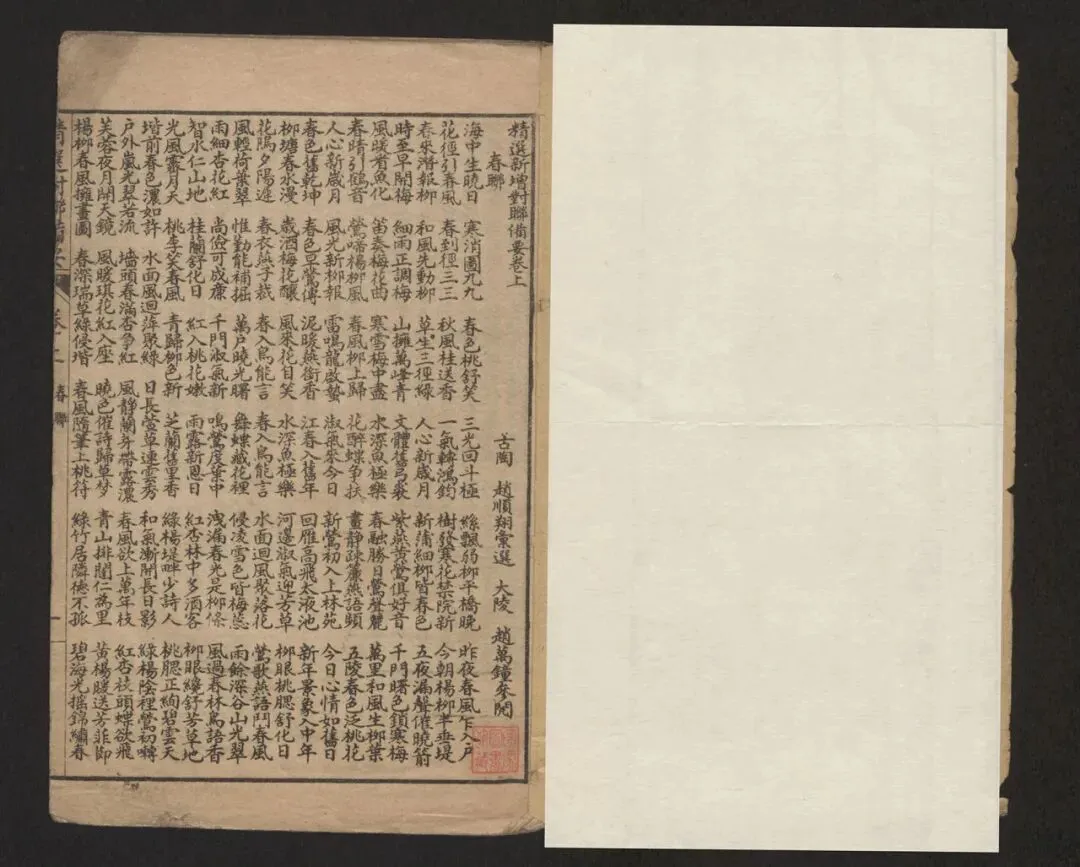 精選新增對聯備要卷上
春聯 古陶 趙順翔彙選 大陵 趙萬鐘參閱
海中生曉日 寒消圖九九 春色桃舒笑 三光回斗極 絲飄弱柳平橋晚 昨夜春風乍入戶
花徑引春風 春到徑三三 秋風桂送香 一氣轉鴻鈞 樹發寒花禁院新 今朝楊柳半垂堤
春來潛報柳 和風先動柳 草生三徑綠 人心新歲月 新蒲細柳皆春色 五夜漏聲催曉箭
時至早開梅 細雨正調梅 山擁萬峰青 文體舊弓裘 紫燕黃鶯俱好音 千門曙色鎖寒梅
風暖看魚化 笛奏梅花曲 寒雪梅中盡 水深魚極樂 春融勝日鶯聲麗 萬里和風生柳葉
春晴引鶴音 鶯啼楊柳風 春風柳上歸 花醉蝶爭扶 晝靜疎簾燕語頻 五陵春色泛桃花
人心新歲月 風光新柳報 雷鳴龍啟蟄 淑氣來今日 新鶯初入上林苑 今日心情如舊日
春色舊乾坤 春色早鶯傳 泥暖燕銜香 江春入舊年 回雁高飛太液池 新年景象入中年
柳塘春水漫 歲酒梅花釀 風來花自笑 水深魚極樂 河邊淑氣迎芳草 柳眼桃腮舒化日
花隖夕陽遲 春衣燕子裁 春入鳥能言 春入鳥能言 水面迴風聚落花 鶯歌燕語鬥春風
風輕荷葉翠 惟勤能補掘 萬戶曉光曙 舞蝶藏花裡 侵凌雪色皆梅蕊 雨餘深谷山光翠
雨細杏花紅 尚儉可成廉 千門淑氣新 鳴鶯度葉中 洩漏春光是柳條 風過春林鳥語香
智水仁山地 桂蘭舒化日 紅入桃花嫩 雨露新恩日 紅杏林中多酒客 柳眼纔舒芳草地
光風霽月天 桃李笑春風 青歸柳色新 芝蘭舊里香 綠楊堤畔少詩人 桃腮正絢碧雲天
堦前春色濃如許 水面風迴萍聚綠 日長萱草連雲秀 和氣漸開長日影 綠楊陰裡鶯初囀
戶外嵐光翠若流 墻頭春滿杏爭紅 風靜蘭芽帶露濃 春風欲上萬年枝 紅杏枝頭蝶欲飛
芙蓉夜月開天鏡 風暖琪花紅入座 曉色催詩歸草夢 青山排闥仁為里 黃楊暖送芳菲節
楊柳春風擁畫圖 春深瑞草綠侵堦 春風隨筆上桃符 綠竹居鄰德不孤 碧海光搖錦繡春
春聯 一